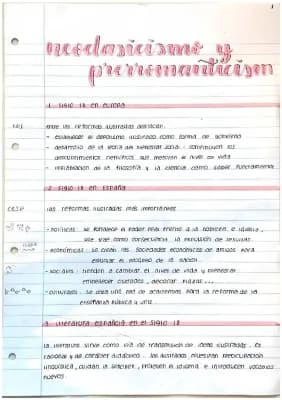 neoclasicismo y
prerromanticism
1 siglo 18 en europa
entre las reformas ilustradas destacan:
- establecer el despotismo ilustrado como forma de gobierno
- desarrollo de la teoría del
descubrimientos científicos que mejoran el nivel de vida
- de la filosofía y la ciencia como saber fundamental
2 siglo 18 en españa
las reformas ilustradas más importantes
- políticas: se fortalece el poder real frente a la nobleza e iglesia,
que trae como consecuencia la expulsión de jesuitas.
- económicas: se crean las sociedades económicas de amigos para
estudiar el modelo de la nación.
- sociales: tienden a cambiar el nivel de vida y bienestar
embellecer ciudades, decorar plazas...
- culturales: se crea una red de academias para la reforma de la
enseñanza pública y uni.
3 literatura española en el siglo 18
la literatura sirve como vía de transmisión de ideas ilustradas. es
racional y de carácter didáctico. los ilustrados muestran preocupación
lingüística, cuidan la, protegen el idioma e introducen vocablos
nuevos.